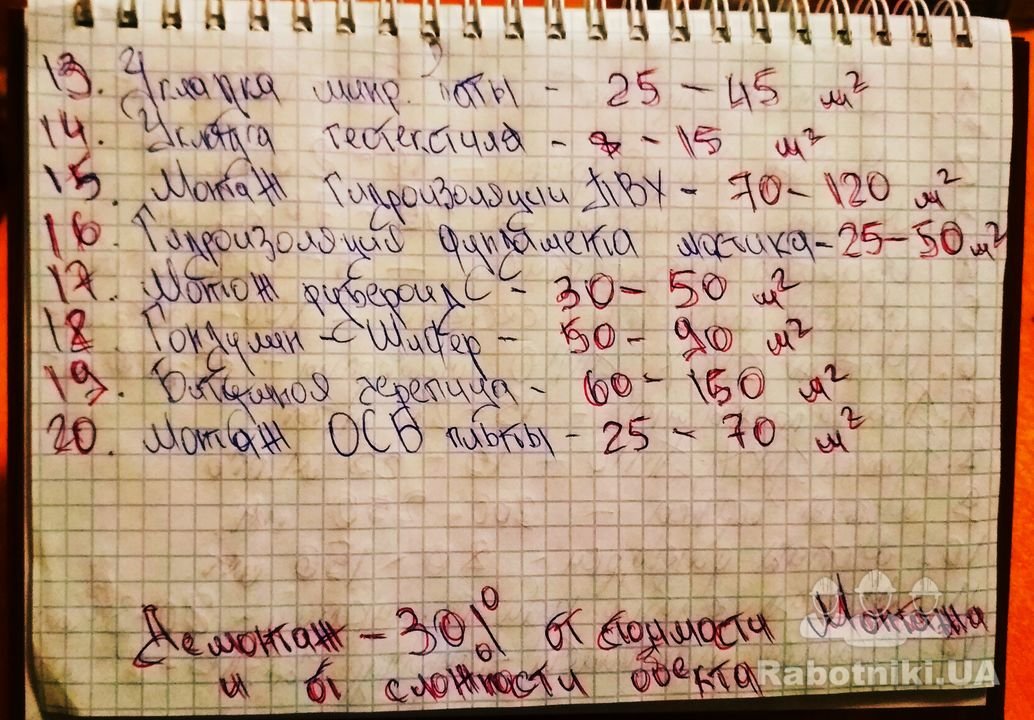 13. Укладка мин. ваты - 25 - 45 м²
14. Укладка геотекстиля - 8 - 15 м²
15. Монтаж гидроизоляции ПВХ - 70 - 120 м²
16. Гидроизоляция фундамента мастика - 25 - 50 м²
17. Монтаж рубероид - 30 - 50 м²
18. - Шифер - 50 - 90 м²
19. Битумная черепица - 60 - 150 м²
20. Монтаж ОСБ плиты - 25 - 70 м²
Демонтаж - 30% от стоимости Монтажа
и от сложности обекта
Rabotniki.UA